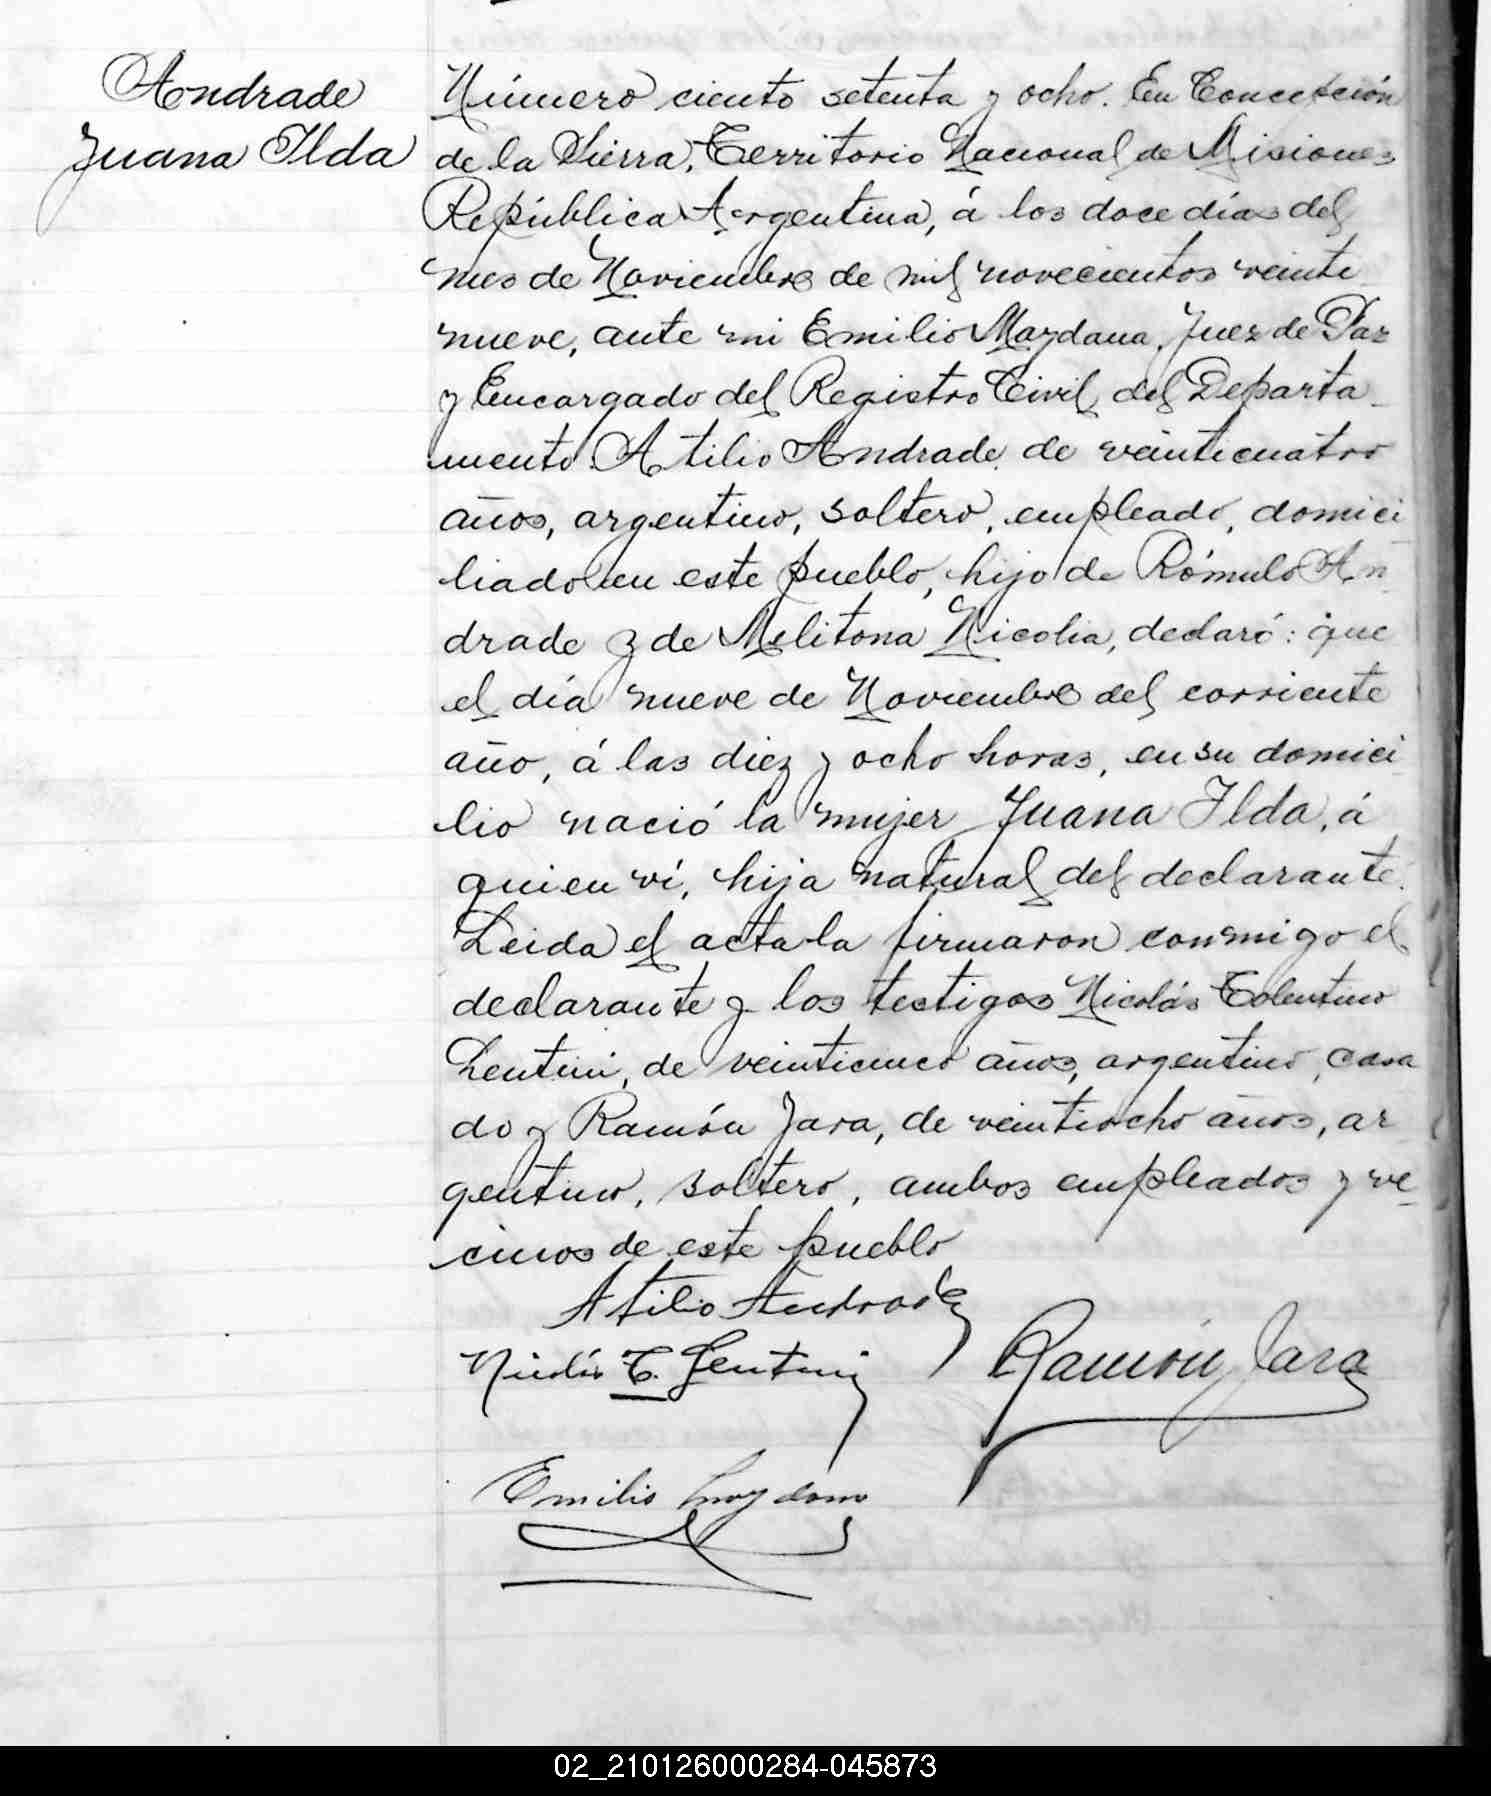 Andrade
Juana Ilda
Número ciento setenta y ocho. En Concepción
de la Sierra, Territorio Nacional de Misiones
República Argentina, á los doce días del
mes de Noviembre de mil novecientos veinti
nueve, ante mi Emilio Maydana, Juez de Paz
y Encargado del Registro Civil del Departa-
mento Atilio Andrade de veinticuatro
años, argentino, soltero, empleado, domici
liado en este pueblo, hijo de Rómulo An
drade y de Melitona Nicolia, declaró: que
el día nueve de Noviembre del corriente
año, á las diez y ocho horas, en su domici
lio nació la mujer Juana Ilda, á
quien ví, hija natural del declarante.
Leida el acta la firmaron conmigo el
declarante y los testigos Nicolás Tolentino
Lentini, de veinticinco años, argentino, casa
do y Ramón Jara, de veintiocho años, ar
gentino, soltero, ambos empleados y ve
cinos de este pueblo
Atilio Andrade
Nicolás T. Lentini
Ramón Jara
Emilio Maydana
02_210126000284-045873